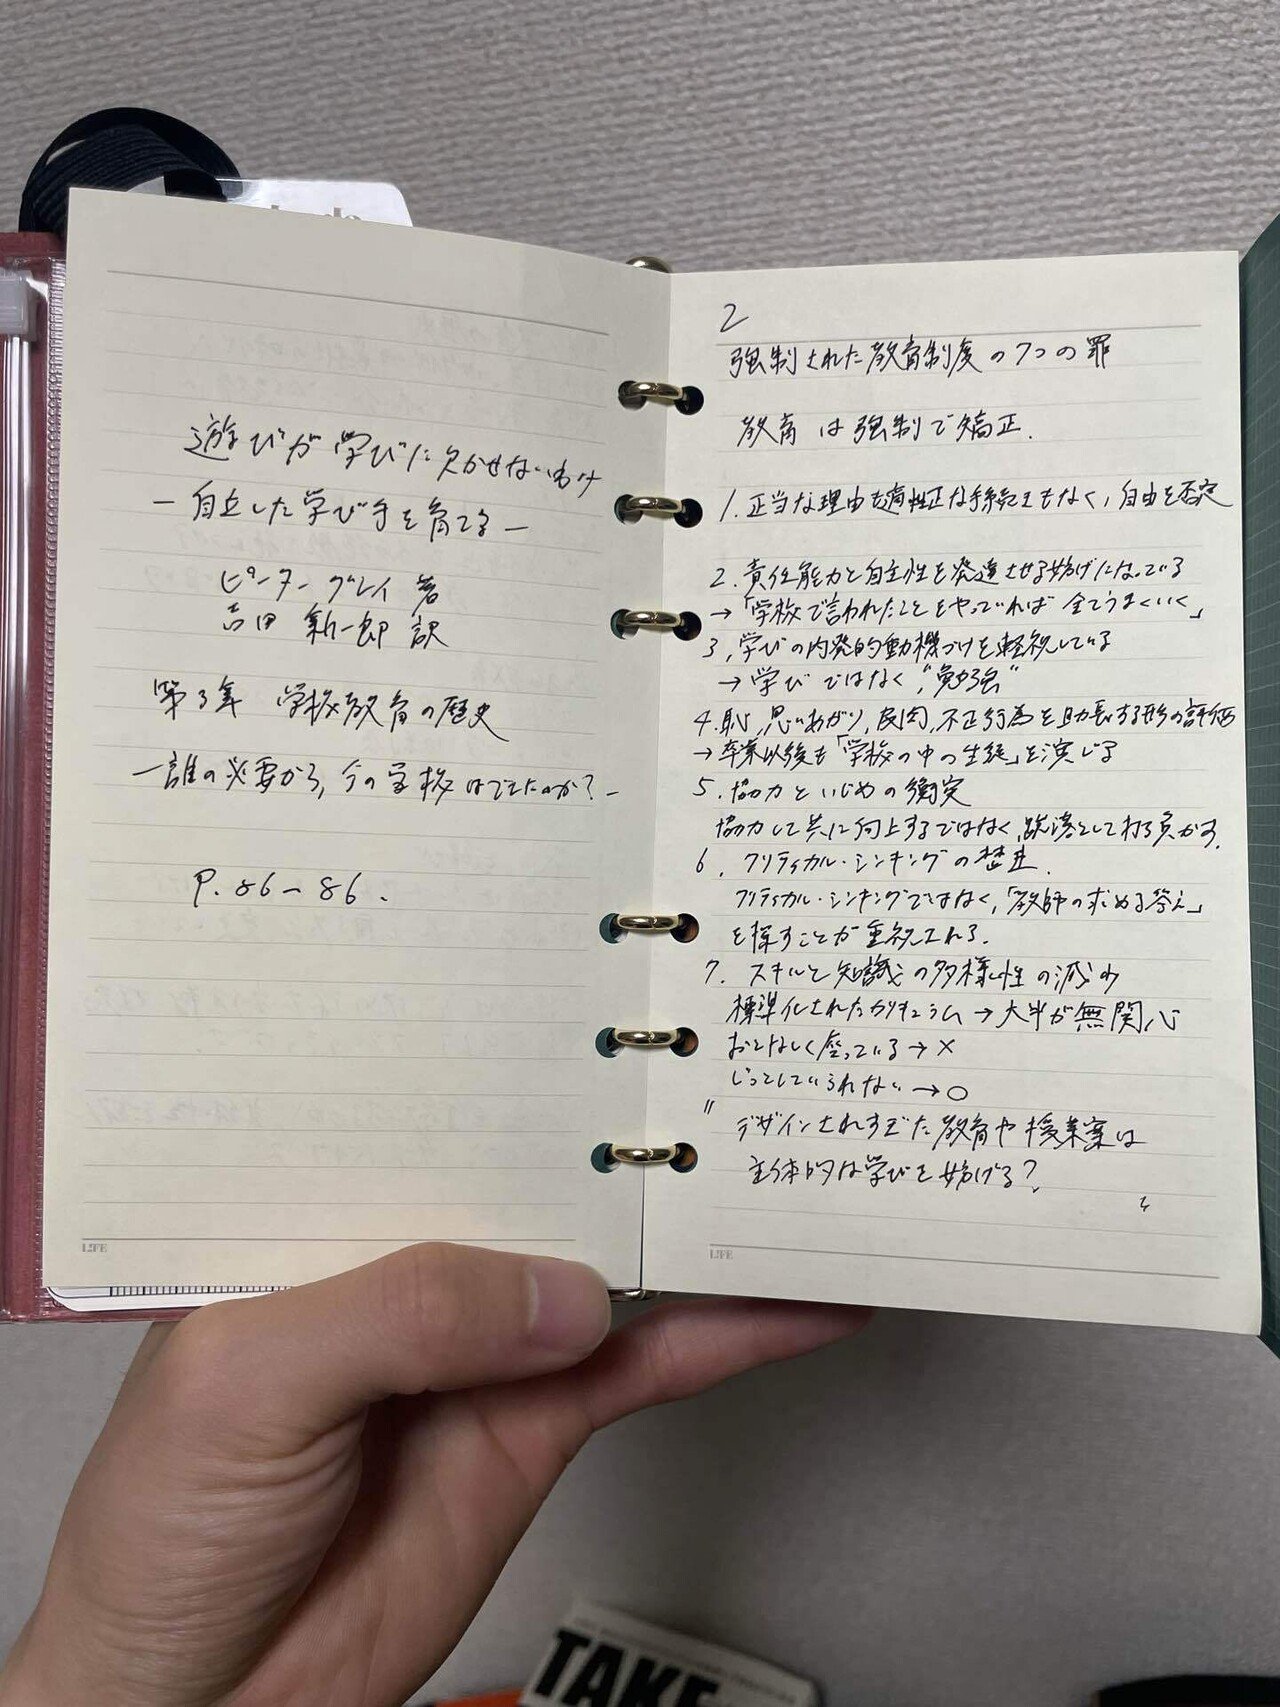 遊びが学びに欠かせないわけ
ー自立した学び手を育てるー
ピーター グレイ 著
吉田 新一郎 訳
第3章 学校教育の歴史
ー誰の必要から、今の学校はできたのか?ー
P.86〜86.
LIFE
2
強制された教育制度の7つの罪
教育は強制で矯正.
1.正当な理由も適性正な手続きもなく、自由を否定
2.責任能力と自主性を発達させる妨げになっている
→「学校で言われたことをやっていれば全てうまくいく」
3.学びの内発的動機づけを軽視している
→学びではなく、"勉強"
4.恥、思いあがり、皮肉、不正行為を助長する形の評価
→卒業以後も「学校の中の生徒」を演じる
5.協力といじめの衝突
協力して共に向上するではなく、蹴落として打ち負かす.
6.クリティカル・シンキングの禁止.
クリティカル・シンキングではなく、「教師の求める答え」
を探すことが重視される.
7.スキルと知識の多様性の減少
標準化されたカリキュラム→大半が無関心
おとなしく座っている→×
じっとしていられない→○
"デザインされすぎた教育や授業案は
主体的な学びを妨げる?
LIFE
TAKE